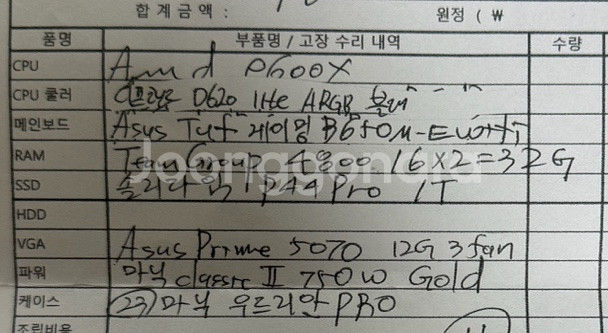 합 계 금 액 : 원정 ( ₩
품명 부품명 / 고장 수리 내역 수량
CPU Amd 9600X
CPU 쿨러 D620 lite ARGB 블랙
메인보드 Asus Tuf 게이밍 B650M-E WIFI
RAM TeamGroup 4800 16X2=32G
SSD 솔리다임 P44 Pro 1T
HDD
VGA Asus Prime 5070 12G 3fan
파워 마닉 classic II 750W Gold
케이스 마닉 우드리안 PRO
조립비용
Joonggonara